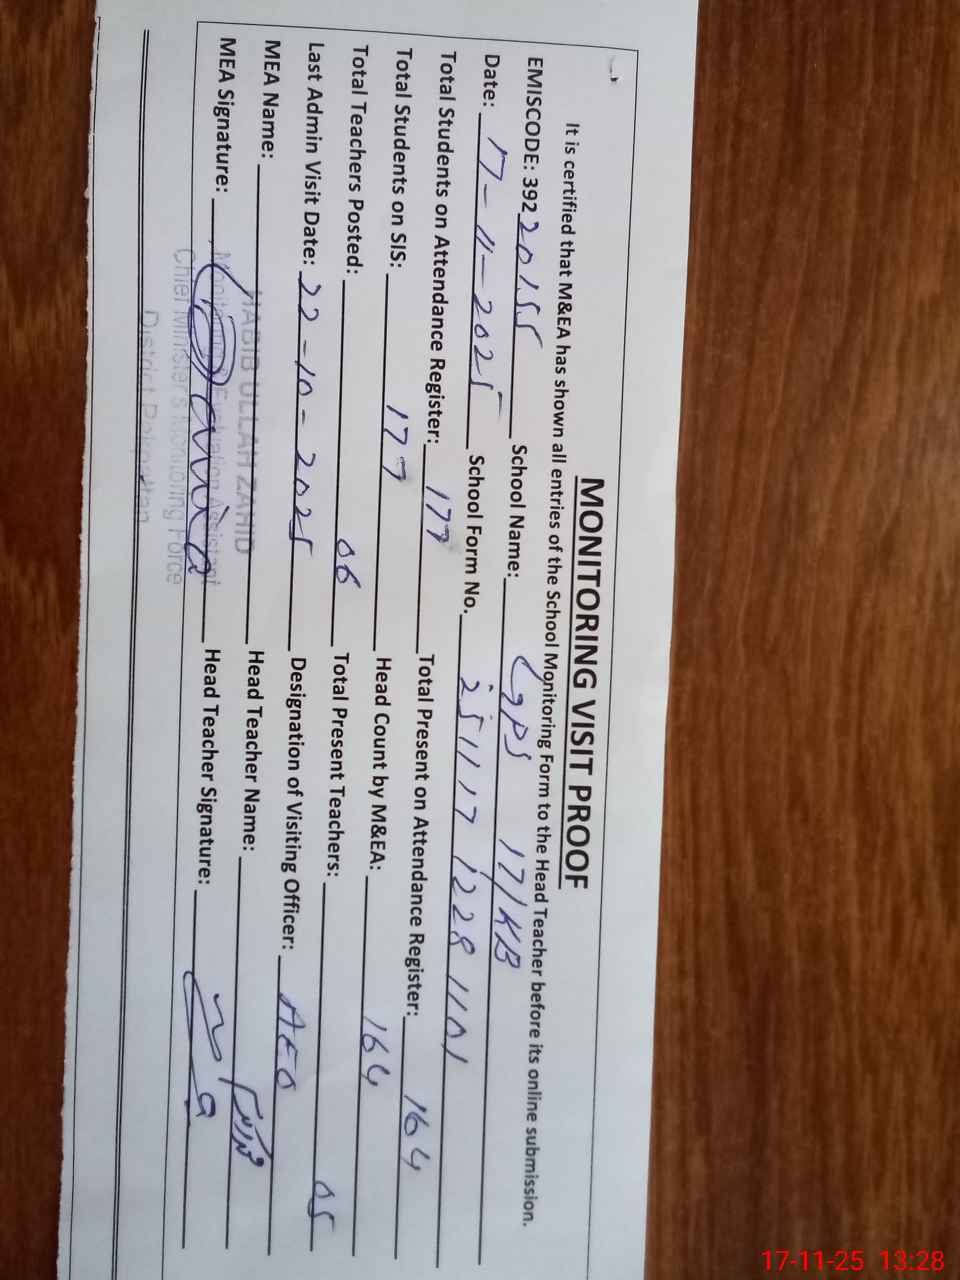 MONITORING VISIT PROOF
It is certified that M&EA has shown all entries of the School Monitoring Form to the Head Teacher before its online submission.
EMISCODE: 39220155 School Name: GPS 17/KB
Date: 17-11-2025 School Form No. 2511171228 1101
Total Students on Attendance Register: 177 Total Present on Attendance Register: 164
Total Students on SIS: 177 Head Count by M&EA: 164
Total Teachers Posted: 06 Total Present Teachers: 05
Last Admin Visit Date: 22-10-2025 Designation of Visiting Officer: AEO
MEA Name: HABIB ULLAH ZAHID Head Teacher Name:
MEA Signature: Head Teacher Signature:
Monitoring & Evaluation Assistant
Chief Minister's Monitoring Force
District Pakpattan
17-11-25 13:28